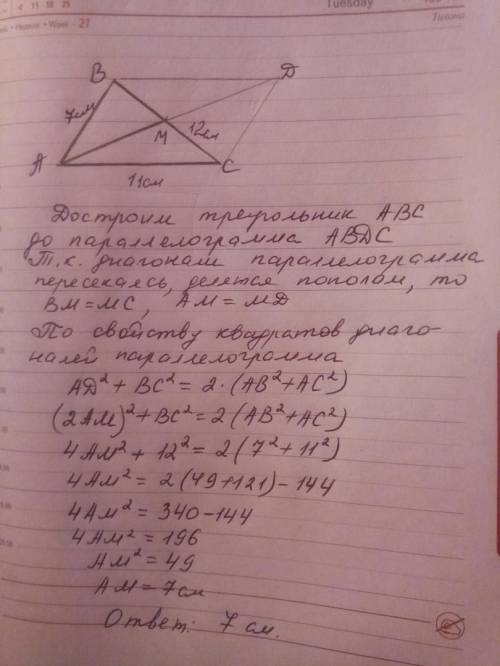 4 11 18 25
Tuesday
Неделя • Week • 27
B
D
7см
M
12см
A
C
11см
Достроим треугольник ABC
до параллелограмма ABDC
Т.к. диагонали параллелограмма
пересекаясь, делятся пополам, то
BM=MC, AM=MD
По свойству квадратов диаго-
налей параллелограмма
AD²+BC²=2·(AB²+AC²)
(2AM)²+BC²=2(AB²+AC²)
4AM²+12²=2(7²+11²)
4AM²=2(49+121)-144
4AM²=340-144
4AM²=196
AM²=49
AM=7см
Ответ: 7 см.